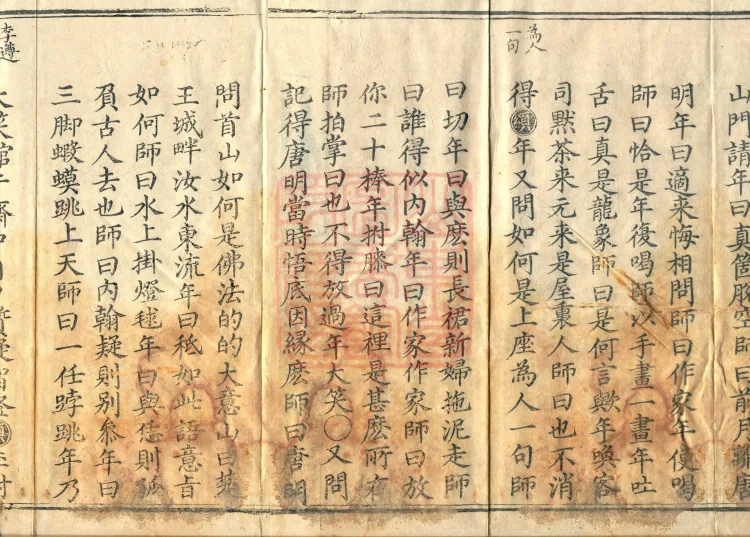 山門請年曰真箇脫空師曰前月離唐
明年曰適来悔相問師曰作家年便喝
師曰恰是年復喝師以手畫一畫年吐
舌曰真是龍象師曰是何言歟年喚客
司點茶来元来是屋裏人師曰也不消
為人
一句
得年又問如何是上座為人一句師
曰切年曰與麽則長裙新婦拖泥走師
曰誰得似内翰年曰作家作家師曰放
你二十捧年拊膝曰這裡是甚麽所在
師拍掌曰也不得放過年大笑〇又問
記得唐明當時悟底因縁麽師曰唐明
問首山如何是佛法的的大意山曰楚
王城畔汝水東流年曰秪如此語意旨
如何師曰水上掛燈毬年曰與恁則孤
負古人去也師曰内翰疑則别叅年曰
三脚蝦蟆跳上天師曰一任𨁝跳年乃
李遵
大笑館于齋中日夕質疑